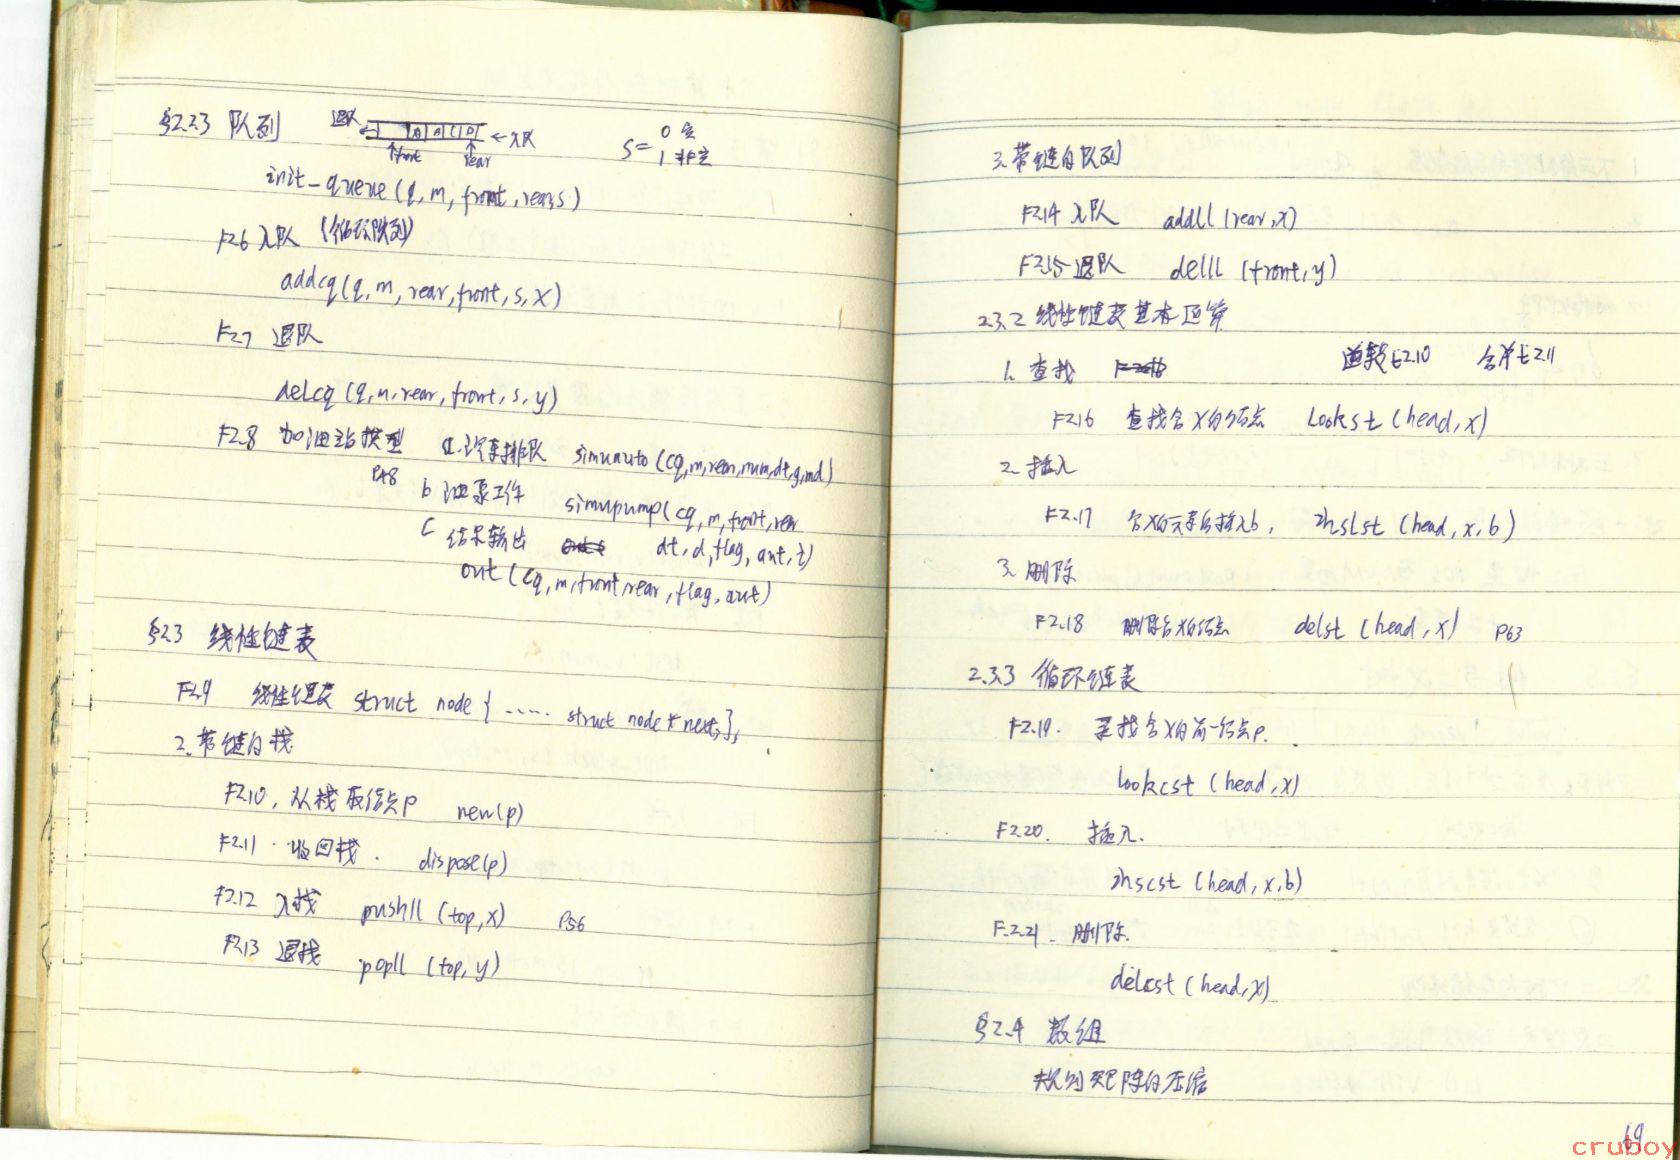 §2.2.3 队列
退队
A B C D
←入队
front
rear
S= 0 空
1 非空
init_queue(q, m, front, rear, s)
F2.6 入队 (循环队列)
addcq(q, m, rear, front, s, x)
F2.7 退队
delcq(q, m, rear, front, s, y)
F2.8 加油站模型 a. 汽车排队 simuauto(cq, m, rear, num, dt, g, md)
P48 b 油泵工作 simupump(cq, m, front, rear
dt, d, flag, aut, t)
c 结果输出
out(cq, m, front, rear, flag, aut)
§2.3 线性链表
F2.9 线性链表 struct node { ...... struct node * next; };
2. 带链的栈
F2.10, 从栈取结点p new(p)
F2.11 收回栈. dispose(p)
F2.12 入栈 pushll (top, x) P56
F2.13 退栈 popll (top, y)
3. 带链的队列
F2.14 入队 addll (rear, x)
F2.15 退队 delll (front, y)
2.3.2 线性链表基本运算
1. 查找 E2.10 合并E2.11
F2.16 查找含X的结点 lookst (head, x)
2. 插入
F2.17 含X的元素前插入b, inslst (head, x, b)
3. 删除
F2.18 删除含X的结点 delst (head, x) P63
2.3.3 循环链表
F2.19. 寻找含X的前一结点p.
lookcst (head, x)
F2.20. 插入.
inscst (head, x, b)
F.2.21. 删除.
delcst (head, x)
§2.4 数组
规则矩阵的压缩
69
cruboy